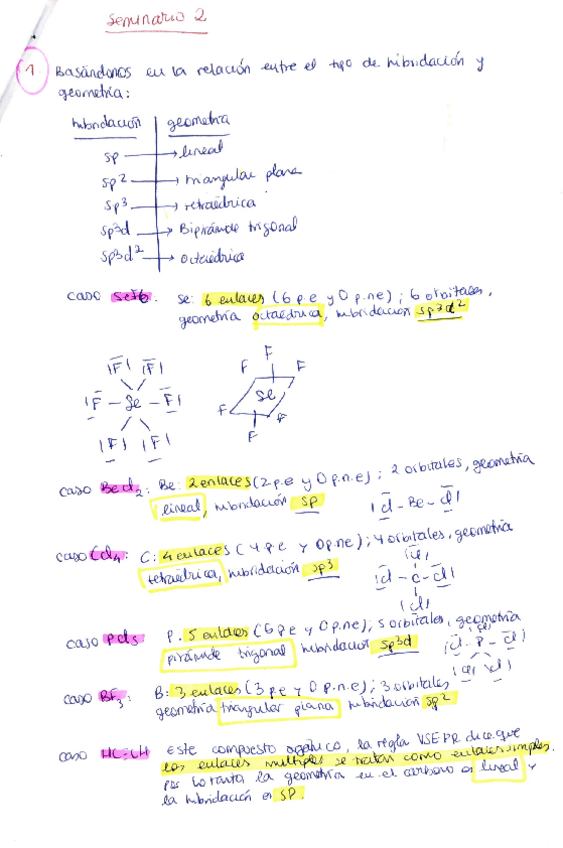 Seminario 2
1. Basándonos en la relación entre el tipo de hibridación y
geometría:
hibridación geometría
sp → lineal
sp2 → triangular plana
sp3 → tetraédrica
sp3d → Bipirámide trigonal
sp3d2 → octaédrica
caso SeF6. Se: 6 enlaces (6 p.e y 0 p.ne); 6 orbitales,
geometría octaédrica, hibridación sp3d2
|F| |F|
|F – Se – F|
|F| |F|
F
F F
Se
F F
F
caso BeCl2: Be: 2 enlaces (2 p.e y 0 p.n.e); 2 orbitales, geometría
lineal, hibridación sp
|Cl – Be – Cl|
caso CCl4: C: 4 enlaces (4 p.e y 0 p.ne); 4 orbitales, geometría
tetraédrica, hibridación sp3
|Cl|
|Cl – C – Cl|
|Cl|
caso PCl5 P. 5 enlaces (5 p.e y 0 p.ne); 5 orbitales, geometría
pirámide trigonal hibridación sp3d
|Cl|
|Cl – P – Cl|
|Cl Cl|
caso BF3: B: 3 enlaces (3 p.e y 0 p.n.e); 3 orbitales
geometría triangular plana hibridación sp2
caso HC≡CH Este compuesto orgánico, la regla VSEPR dice que
los enlaces multiples se tratan como enlaces simples.
por lo tanto la geometría en el carbono es lineal y
la hibridación es sp.